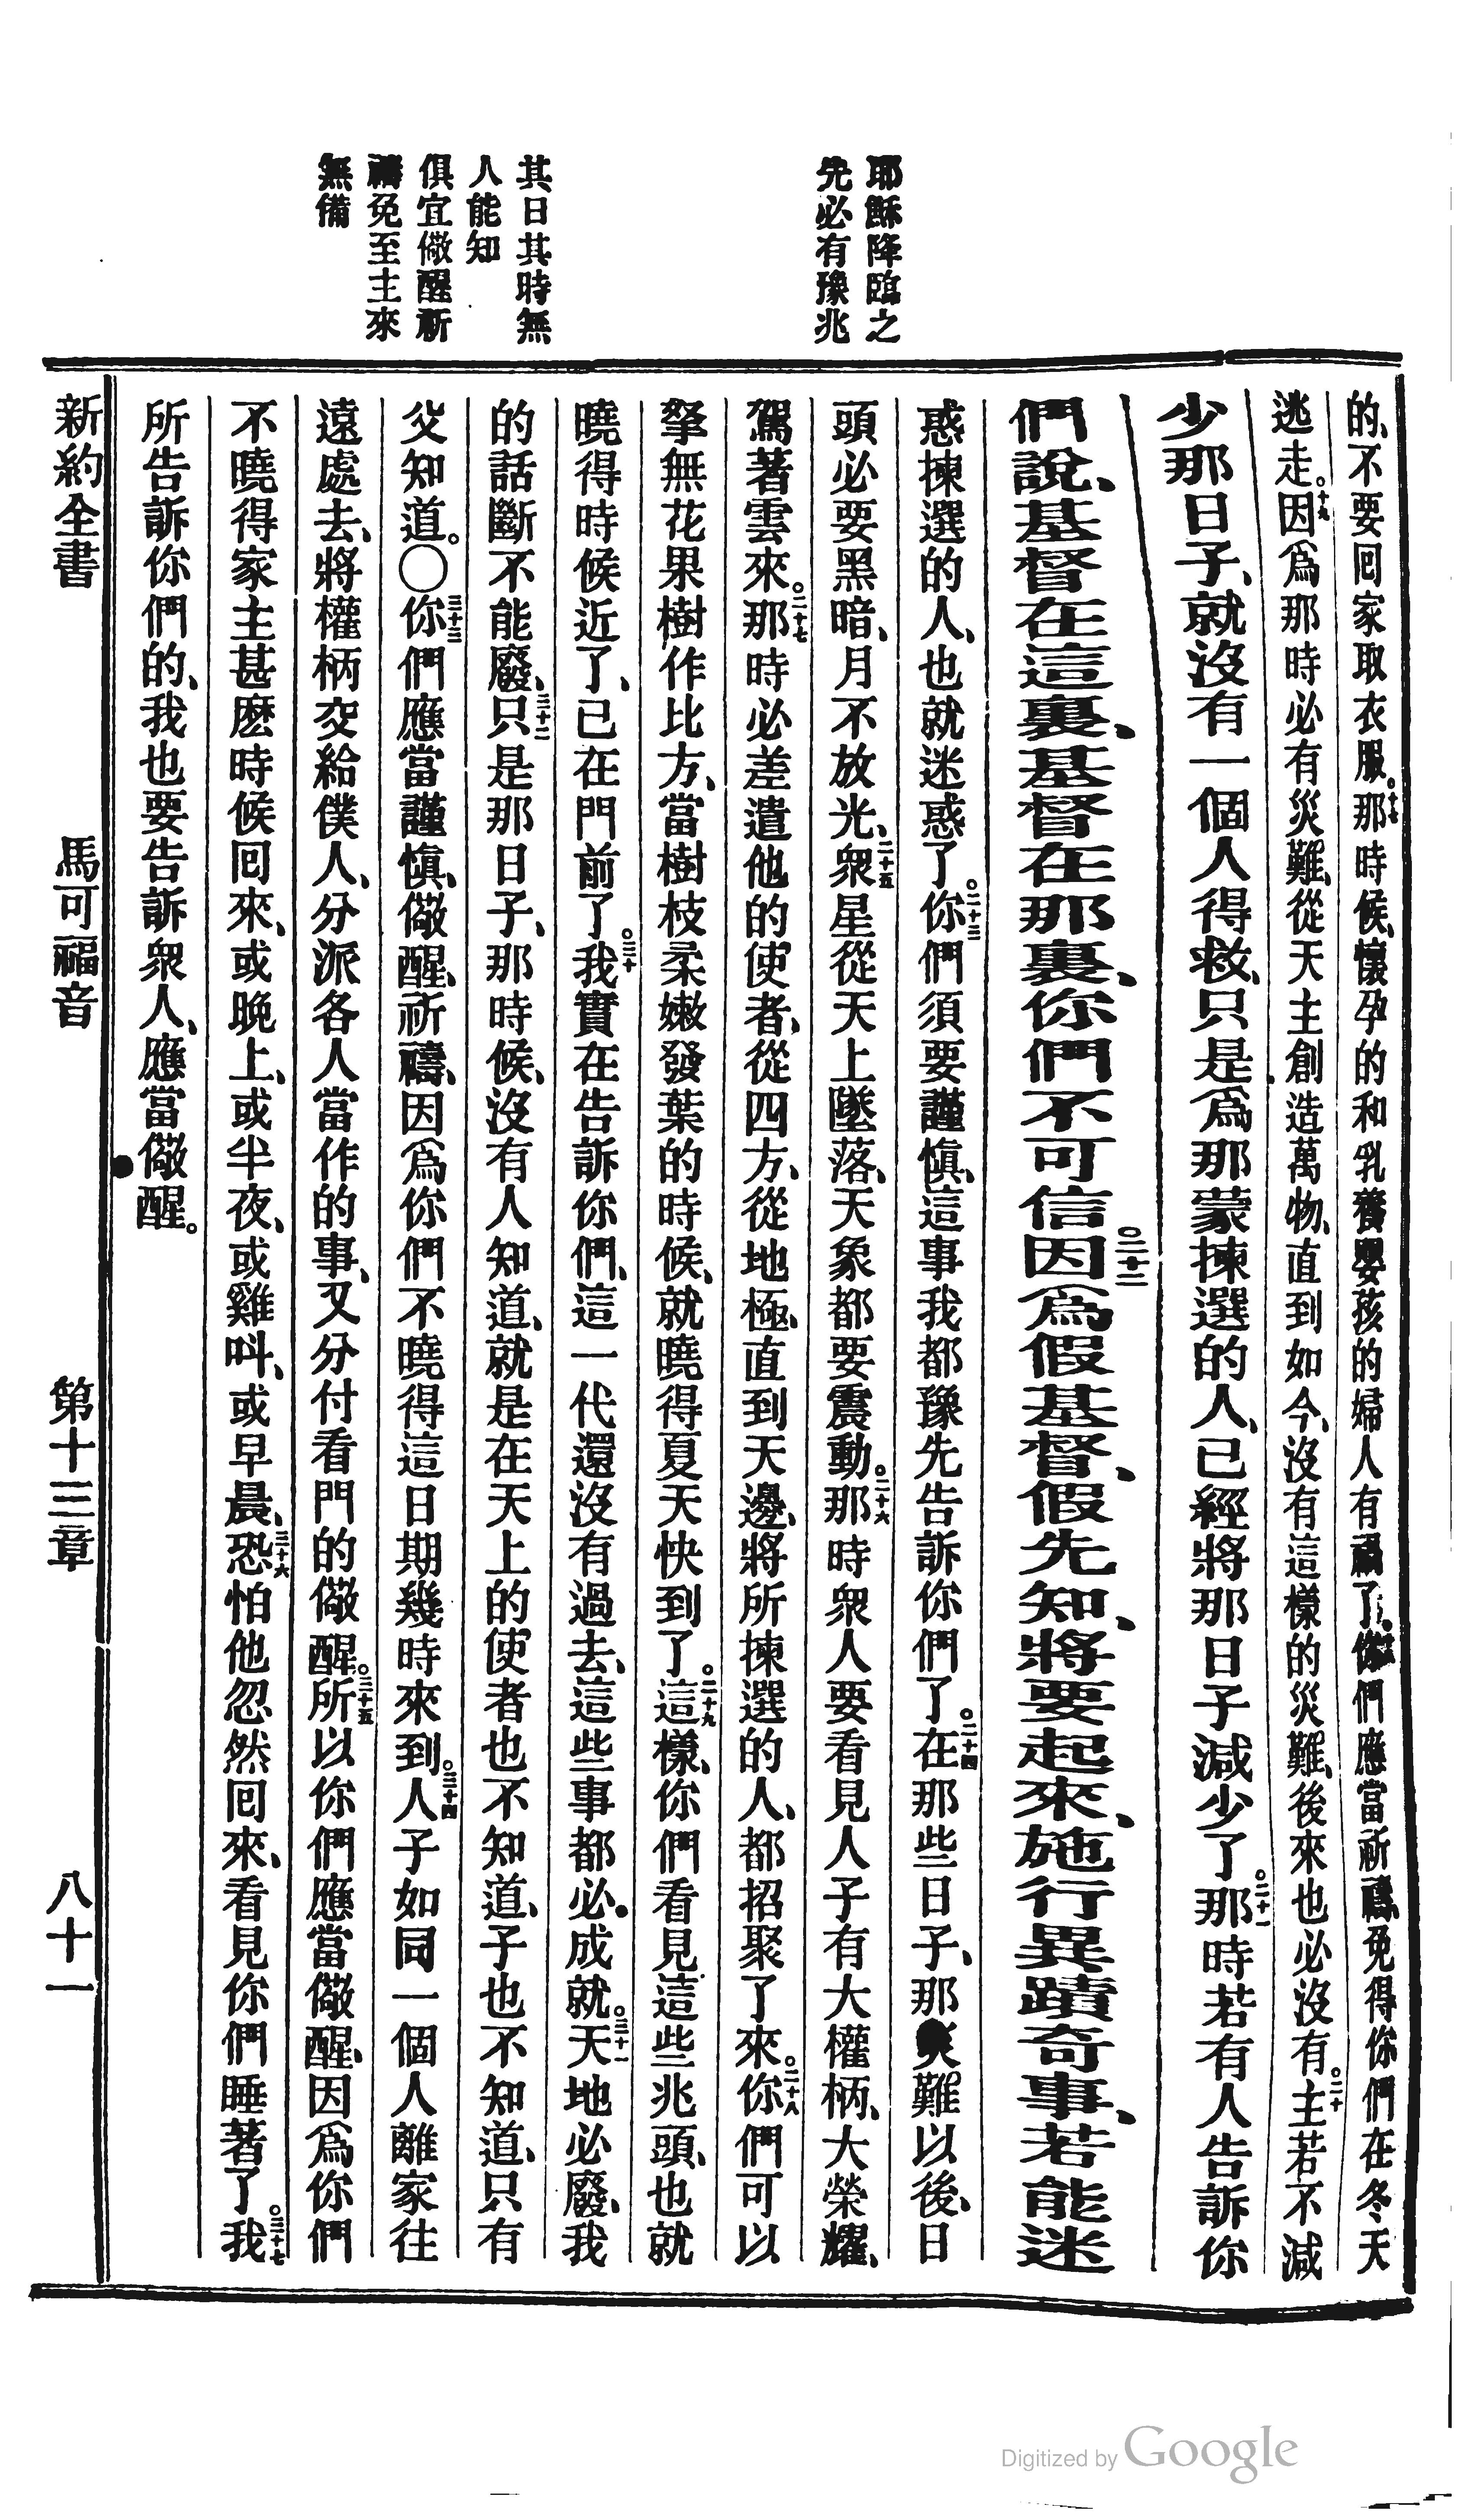 耶穌降臨之
先必有豫兆
其日其時無
人能知
俱宜儆醒祈
禱免至主來
無備
的、不要囘家取衣服。十七那時候、懷孕的和乳養嬰孩的婦人有禍了。你們應當祈禱、免得你們在冬天
逃走。十九因爲那時必有災難、從天主創造萬物、直到如今、沒有這樣的災難、後來也必沒有。二十主若不減
少那日子、就沒有一個人得救、只是爲那蒙揀選的人、已經將那日子減少了。二十一那時若有人告訴你
們說、基督在這裏、基督在那裏、你們不可信。二十二因爲假基督、假先知、將要起來、施行異蹟奇事、若能迷
惑揀選的人、也就迷惑了。二十三你們須要謹慎、這事我都豫先告訴你們了。二十四在那些日子、那災難以後、日
頭必要黑暗、月不放光、二十五衆星從天上墜落、天象都要震動。二十六那時衆人要看見人子有大權柄、大榮耀、
駕著雲來。二十七那時必差遣他的使者、從四方、從地極、直到天邊、將所揀選的人、都招聚了來。二十八你們可以
拏無花果樹作比方、當樹枝柔嫩發葉的時候、就曉得夏天快到了。二十九這樣、你們看見這些兆頭、也就
曉得時候近了、已在門前了。三十我實在告訴你們、這一代還沒有過去、這些事都必成就。三十一天地必廢、我
的話斷不能廢、三十二只是那日子、那時候、沒有人知道、就是在天上的使者也不知道、子也不知道、只有
父知道。〇三十三你們應當謹慎、儆醒、祈禱、因爲你們不曉得這日期幾時來到。三十四人子如同一個人離家往
遠處去、將權柄交給僕人、分派各人當作的事、又分付看門的儆醒。三十五所以你們應當儆醒、因爲你們
不曉得家主甚麽時候囘來、或晚上、或半夜、或雞呌、或早晨、三十六恐怕他忽然囘來、看見你們睡著了。三十七我
所告訴你們的、我也要告訴衆人、應當儆醒。
新約全書 馬可福音 第十三章 八十一
Digitized by Google